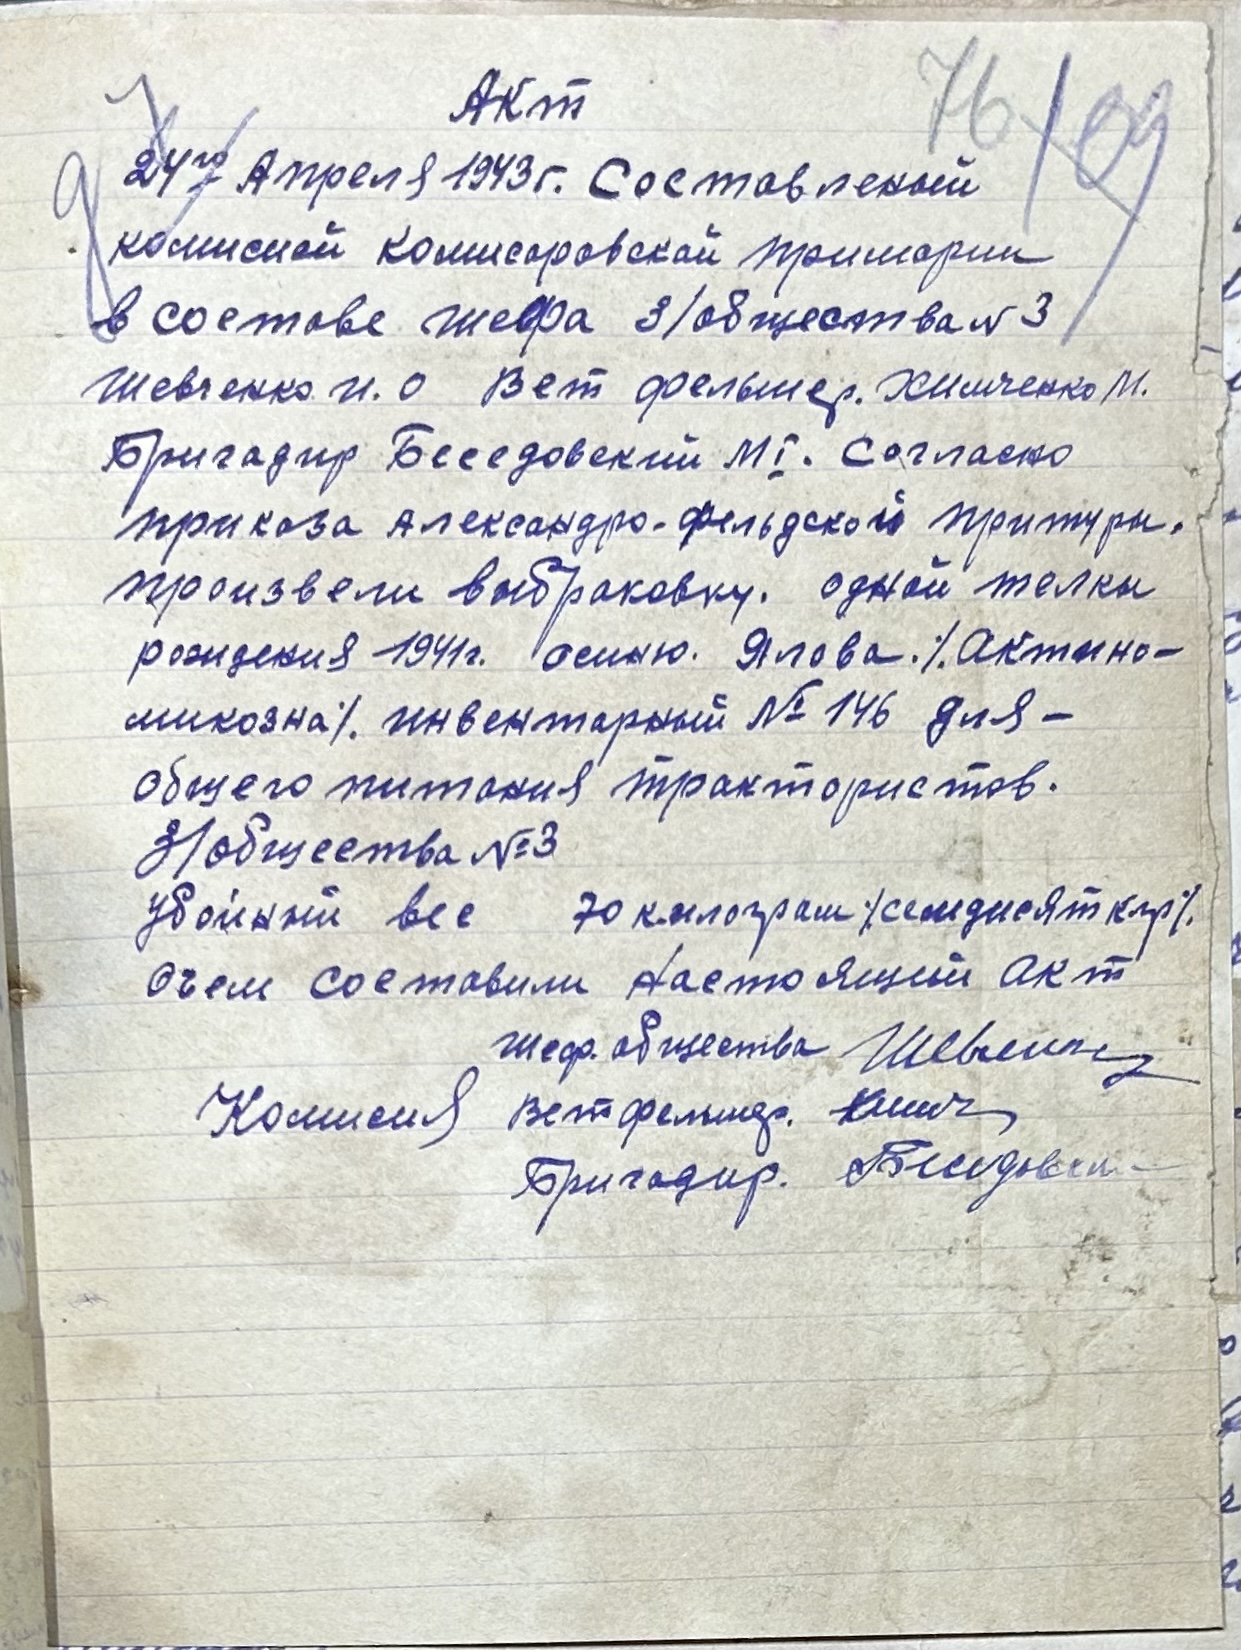 76 109
Акт
24го Апреля 1943г. Составленый
комисией Комисаровской примарии
в составе шефа З/общества № 3
Шевченко И. О Вет фельшер. Химченко М.
Бригадир Беседовский М Г. Согласно
приказа Александро-фельдской притуры.
произвели выбраковку. одной телки
рождения 1941г. осиню. Ялова ./. Актино-
микозна ./. инвентарный № 146 для -
общего питания трактористов.
З/общества № 3
Убойный вес 70 килограм ./. семдисят клр ./.
Очем составили настоящий Акт
Шеф. общества
Комисия Ветфельшер.
Бригадир. Беседовски